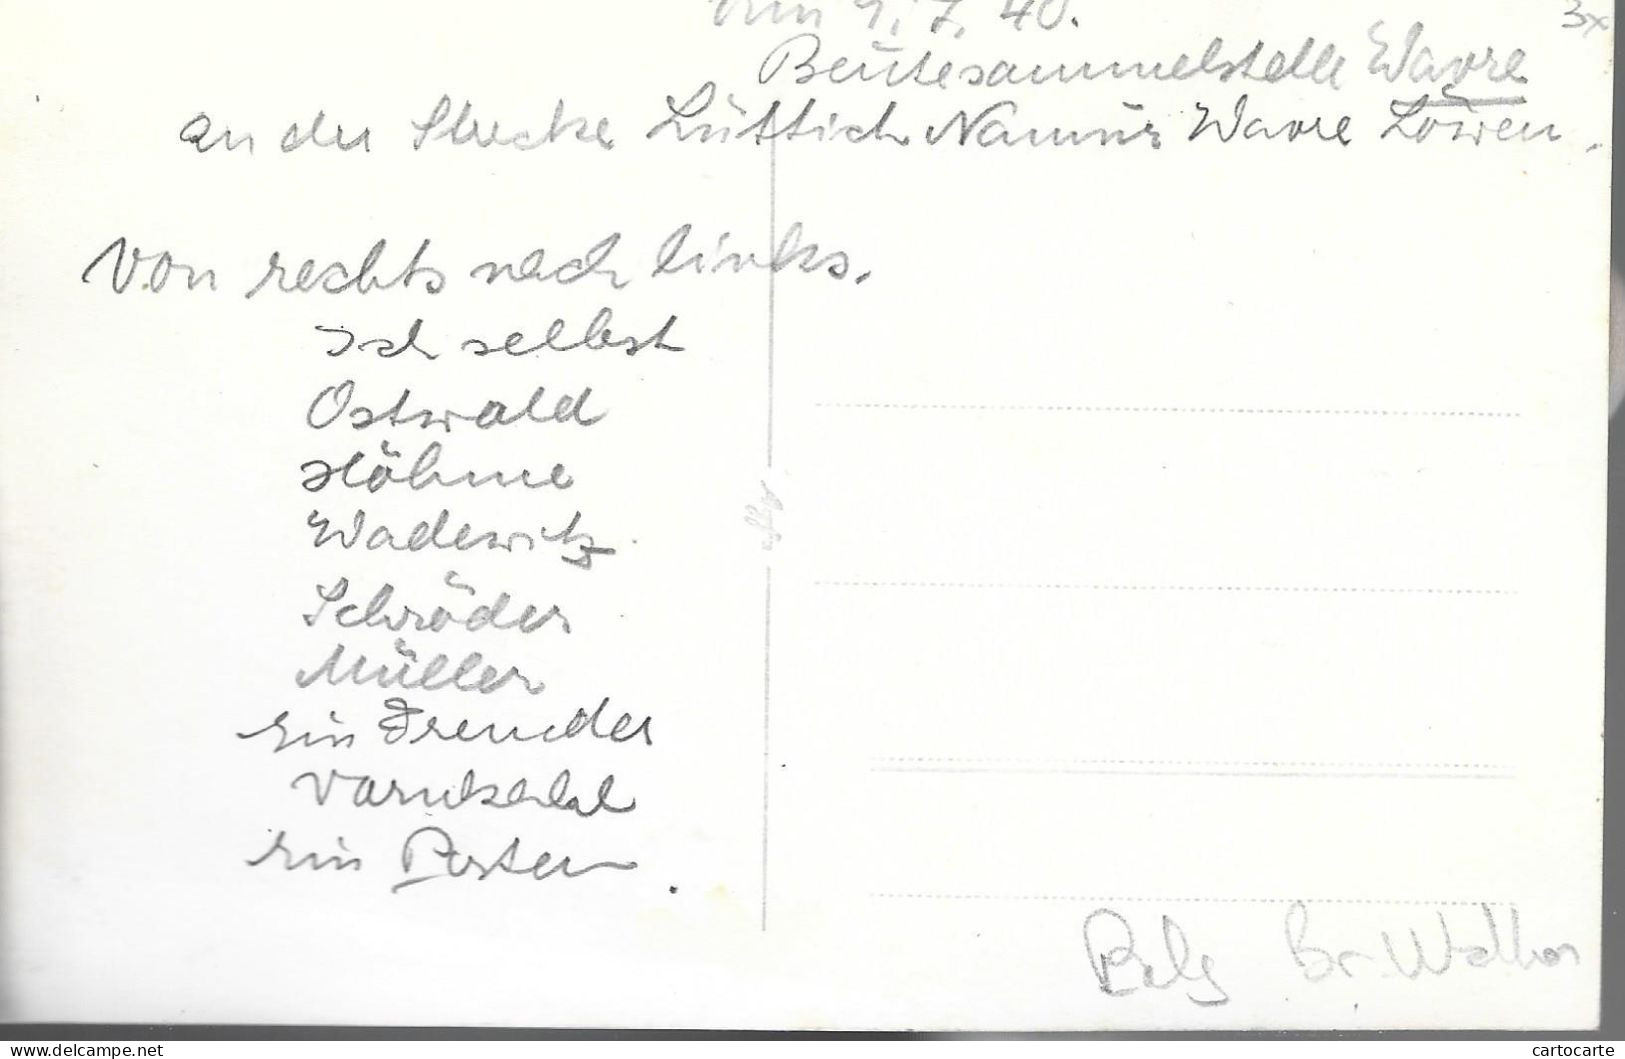 3x
4.7.40.
Beutesammelstelle Wavre
an der Strecke Lüttich Namur Wavre Löwen.
Von rechts nach links.
Ich selbst
Ostwald
Höhme
Wadewitz
Schröder
Müller
ein Fremder
ein Posten.
Belg Br. Wallon
delcampe.net
cartocarte